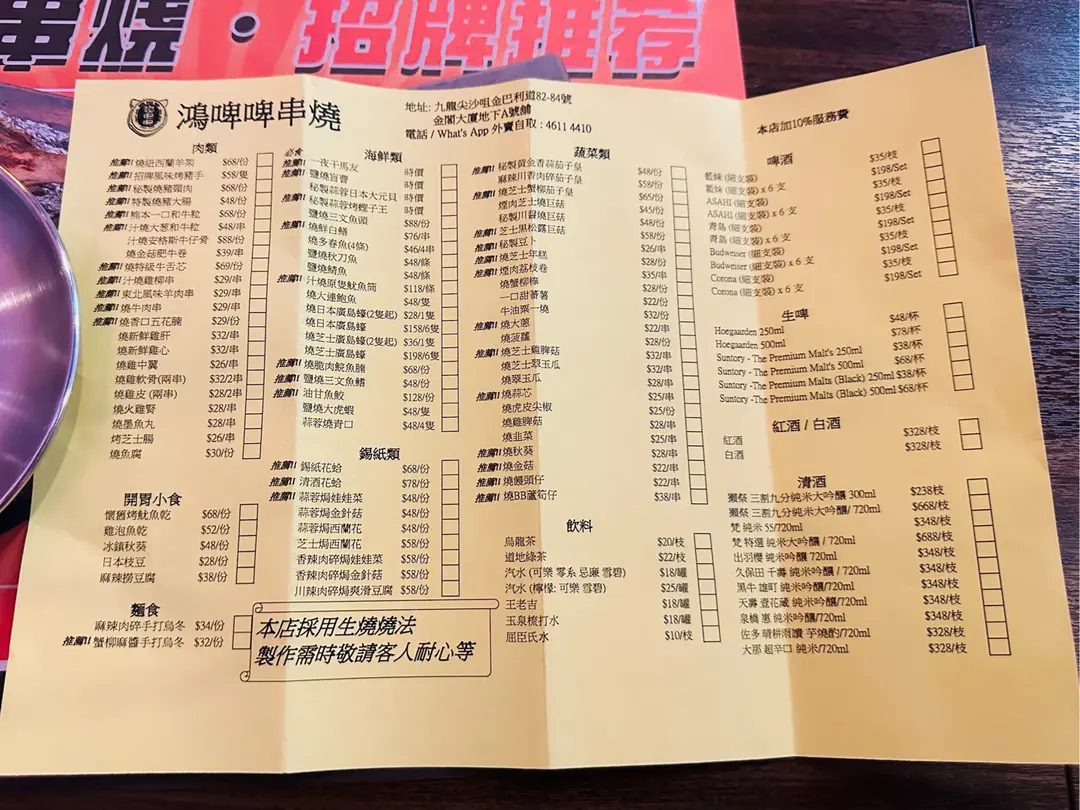 串燒·招牌推荐
鴻啤啤串燒
地址: 九龍尖沙咀金巴利道82-84號
金閣大廈地下A號舖
電話 / What's App 外賣自取 : 4611 4410
本店加10%服務費
肉類
推薦!! 燒紐西蘭羊架 $68/份
推薦!! 招牌風味烤豬手 $58/隻
推薦!! 秘製燒豬頸肉 $68/份
推薦!! 特製燒豬大腸 $48/份
推薦!! 熊本一口和牛粒 $68/份
推薦!! 汁燒大蔥和牛粒 $48/串
汁燒安格斯牛仔骨 $88/份
燒金菇肥牛卷 $39/串
推薦!! 燒特級牛舌芯 $69/份
推薦!! 汁燒雞柳串 $29/串
推薦!! 東北風味羊肉串 $29/串
推薦!! 燒牛肉串 $29/串
推薦!! 燒香口五花腩 $29/份
燒新鮮雞肝 $32/串
燒新鮮雞心 $32/串
燒雞中翼 $26/串
燒雞軟骨(兩串) $32/2串
燒雞皮 (兩串) $28/2串
燒火雞腎 $28/串
燒墨魚丸 $28/串
烤芝士腸 $26/串
燒魚腐 $30/份
開胃小食
懷舊烤魷魚乾 $68/份
雞泡魚乾 $52/份
冰鎮秋葵 $48/份
日本枝豆 $28/份
麻辣撈豆腐 $38/份
麵食
麻辣肉碎手打烏冬 $34/份
推薦!! 蟹柳麻醬手打烏冬 $32/份
海鮮類
必食
推薦!! 一夜干馬友 時價
推薦!! 鹽燒盲曹 時價
秘製蒜蓉日本大元貝 時價
推薦!! 秘製蒜蓉烤蟶子王 時價
鹽燒三文魚頭 $88/份
推薦!! 燒鮮白鱔 $76/串
燒多春魚(4條) $46/4串
鹽燒秋刀魚 $48/條
鹽燒鯖魚 $48/條
推薦!! 汁燒原隻魷魚筒 $118/條
燒大連鮑魚 $48/隻
燒日本廣島蠔(2隻起) $28/1隻
燒日本廣島蠔 $158/6隻
燒芝士廣島蠔(2隻起) $36/1隻
燒芝士廣島蠔 $198/6隻
推薦!! 燒脆肉鯇魚腩 $68/份
推薦!! 鹽燒三文魚鰭 $48/份
推薦!! 油甘魚鮫 $128/份
鹽燒大虎蝦 $48/隻
蒜蓉燒青口 $48/4隻
錫紙類
推薦!! 錫紙花蛤 $68/份
推薦!! 清酒花蛤 $78/份
推薦!! 蒜蓉焗娃娃菜 $48/份
蒜蓉焗金針菇 $48/份
蒜蓉焗西蘭花 $48/份
芝士焗西蘭花 $58/份
香辣肉碎焗娃娃菜 $58/份
香辣肉碎焗金針菇 $58/份
川辣肉碎焗爽滑豆腐 $58/份
本店採用生燒燒法
製作需時敬請客人耐心等
蔬菜類
推薦!! 秘製黃金香蒜茄子皇 $48/份
麻辣川香肉碎茄子皇 $58/份
推薦!! 燒芝士蟹柳茄子皇 $65/份
煙肉芝士燒巨菇 $45/份
秘製川椒燒巨菇 $48/份
推薦!! 芝士黑松露巨菇 $58/份
推薦!! 秘製豆卜 $26/串
推薦!! 燒芝士年糕 $28/份
推薦!! 煙肉荔枝卷 $35/串
燒蟹柳棒 $28/份
一口甜蕃薯 $22/份
牛油粟一燒 $32/份
推薦!! 燒大蔥 $22/串
燒菠蘿 $28/份
推薦!! 燒芝士雞脾菇 $32/串
燒芝士翠玉瓜 $32/串
燒翠玉瓜 $28/串
推薦!! 燒蒜芯 $25/串
燒虎皮尖椒 $25/份
燒雞脾菇 $28/串
燒韭菜 $25/串
推薦!! 燒秋葵 $28/串
推薦!! 燒金菇 $22/串
推薦!! 燒饅頭仔 $22/串
推薦!! 燒BB蘆筍仔 $38/串
飲料
烏龍茶 $20/枝
道地綠茶 $22/枝
汽水 (可樂 零系 忌廉 雪碧) $18/罐
汽水 (檸檬: 可樂 雪碧) $25/罐
王老吉 $18/罐
玉泉梳打水 $18/罐
屈臣氏水 $10/枝
啤酒
藍妹 (細支裝) $35/枝
藍妹 (細支裝) x 6 支 $198/Set
ASAHI (細支裝) $35/枝
ASAHI (細支裝) x 6 支 $198/Set
青島 (細支裝) $35/枝
青島 (細支裝) x 6 支 $198/Set
Budweiser (細支裝) $35/枝
Budweiser (細支裝) x 6 支 $198/Set
Corona (細支裝) $35/枝
Corona (細支裝) x 6 支 $198/Set
生啤
Hoegaarden 250ml $48/杯
Hoegaarden 500ml $78/杯
Suntory - The Premium Malt's 250ml $38/杯
Suntory - The Premium Malt's 500ml $68/杯
Suntory -The Premium Malts (Black) 250ml $38/杯
Suntory -The Premium Malts (Black) 500ml $68/杯
紅酒 / 白酒
紅酒 $328/枝
白酒 $328/枝
清酒
獺祭 三割九分純米大吟釀 300ml $238枝
獺祭 三割九分純米大吟釀/ 720ml $668/枝
梵 純米 55/720ml $348/枝
梵 特選 純米大吟釀 / 720ml $688/枝
出羽櫻 純米吟釀/720ml $348/枝
久保田 千壽 純米吟釀 / 720ml $348/枝
黑牛 雄町 純米吟釀/720ml $348/枝
天壽 壹花藏 純米吟釀/720ml $348/枝
泉橋 惠 純米吟釀/720ml $348/枝
佐多 晴耕雨讀 芋燒酌/720ml $328/枝
大那 超辛口 純米/720ml $328/枝